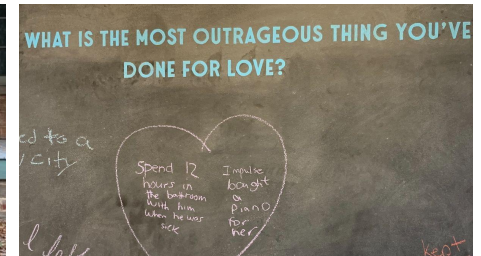 WHAT IS THE MOST OUTRAGEOUS THING YOU'VE
DONE FOR LOVE?
ed to a
city
Spend 12
hours in
the bathroom
with him
when he was
sick
Impulse
bought
a
Piano
for
her
I fell
kept